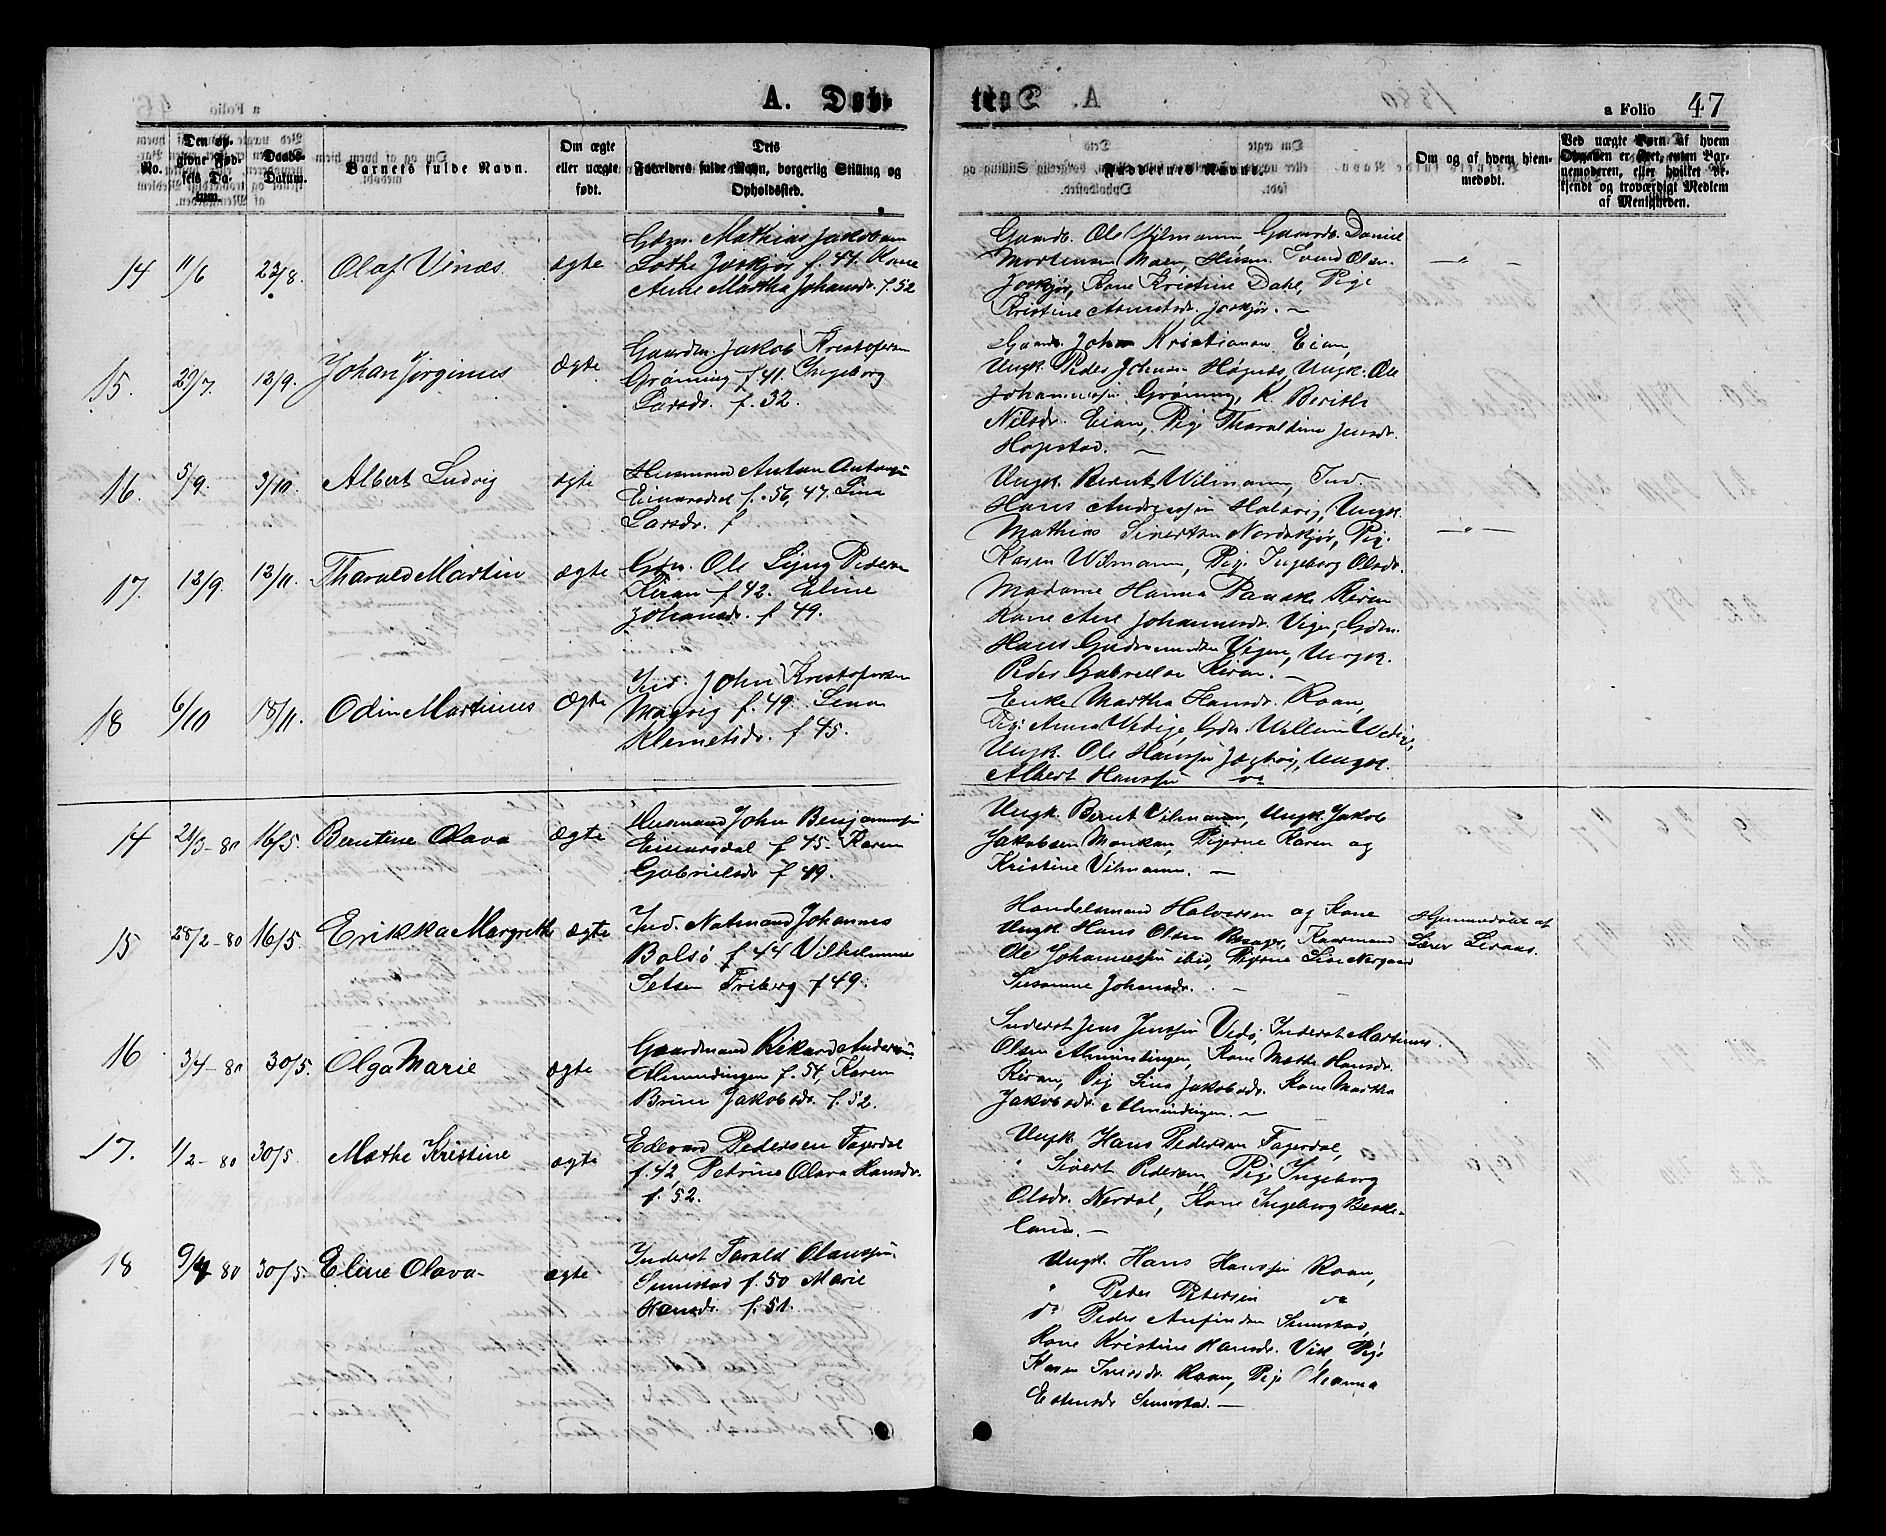 A. Døb-
a Folio 47
No.
Den op-
givne Fød-
sels Da-
tum.
Daabs-
Datum.
Barnets fulde Navn.
Om ægte
eller uægte
født.
Dets
Forældres fulde Navn, borgerlig Stilling og
Opholdssted.
Faddernes Navne.
Om og af hvem hjem-
medøbt.
Ved uægte Børn: Af hvem
Opgaven er skeet, enten Bar-
nemoderen, eller hvilket be-
kjendt og troværdigt Medlem
af Menigheden.
14 11/6 22/8. Olaf Vinæs ægte
Gdm. Mathias Jakobsen
Lothe Joskjør f. 47. Kone
Anne Martha Johansdr. f. 52
Gaardb. Ole Vilmann Gaardb. Daniel
Mortensen Moen, Husm. Trond Olsen
Joskjør, Kone Kristine Dahl, Pige
Kristine Arntsdr. Joskjør. —
15. 29/7 12/9. Johan Jørginus Ægte
Gaardm. Jakob Kristofersen
Grønning f. 41. Ingeborg
Larsdr. f. 32.
Gaardb. John Kristiansen Eian,
Ungk. Peder Johnsen Høgnes, Ungk. Ole
Johannessen Grønning, K. Berith
Nilsdr. Eian, Pige Tharaldine Jensdr.
Hopstad. —
16. 5/9. 3/10. Albert Ludvig ægte
Husmand Anton Antonsen
Einarsdal f. 56, 47. Lina
Larsdr. f
Ungk. Bernt Wilmann, Ind.
Hans Andreassen Halsvig, Ungk.
Mathias Sivertsen Nordskjør, Pige
Karen Wilmann, Pige Ingeborg Olsdr.
17. 12/9 12/11. Tharald Martin ægte
Gdm. Ole Ljng Pedersen
Kiran f. 42. Eline
Johansdr. f. 49.
Madame Hanna Paaske Kiran
Kone Ane Johannesdr. Vigen, Gdm.
Hans Gudmundsen Vigen, Ungk.
Peder Gabrielsen Kiran. —
18 6/10 18/11. Odin Martinus Ægte
Ind. John Kristofersen
Maavig f. 49. Lena
Klemetsdr. f. 45.
Enke Martha Hansdr. Roan,
Pige Anna Wedige, Gdm. Willum Wedige,
Ungk. Ole Hanssen Jægtvig, Ungk.
Albert Hanssen do
14 21/3-80 16/5. Berntine Olava Ægte
Husmand John Benjaminsen
Einarsdal f. 45. Karen
Gabrielsdr f. 49.
Ungk. Bernt Vilmann, Ungk. Jakob
Jakobsen Monkan, Pigerne Karen og
Kristine Vilmann. —
15 28/2-80 16/5. Erikka Margrethe ægte
Ind. Notmand Johannes
Bolsø f. 44 Vilhelmine
Setsen Friberg f. 49.
Handelsmand Halversen og Kone
Ungk. Hans Olsen
Ole Johannessen ibid, Pigerne Line Norgaard
Susanne Johansdr. —
Hjemmedøbt af
Lærer
16 3/4-80 30/5. Olga Marie ægte
Gaardmand Rikard Andersen,
Almendingen f. 54, Karen
Brine Jakobsdr. f. 52.
Inderst Jens Jenssen Veds, Inderst Martinus
Olsen Almindingen, Kone Mette Hansdr.
Kiran, Pige Sina Jakobsdr. Kone Martha
Jakobsdr. Almindingen. —
17. 1/2-80 30/5. Mathe Kristine ægte
Edevard Pedersen Fagerdal
f. 42, Petrine Olava Hansdr.
f. 52.
Ungk. Hans Pedersen Fagerdal,
" Sivert Pedersen, Pige Ingeborg
Olsdr. Nordal, Kone Ingeborg Beske-
land. —
18 9/4 80 30/5. Eline Olava. ægte
Inderst Tarald Olaussen
Sumstad f. 50 Marie
Hansdr. f. 51.
Ungk. Hans Hanssen Roan,
" Peder Petersen do
do Peder Anfindsen Sumstad,
Kone Kristine Hansdr. Vik Pige
Karen Iversdr. Roan, Pige Oleanna
Estensdr Sumstad. —